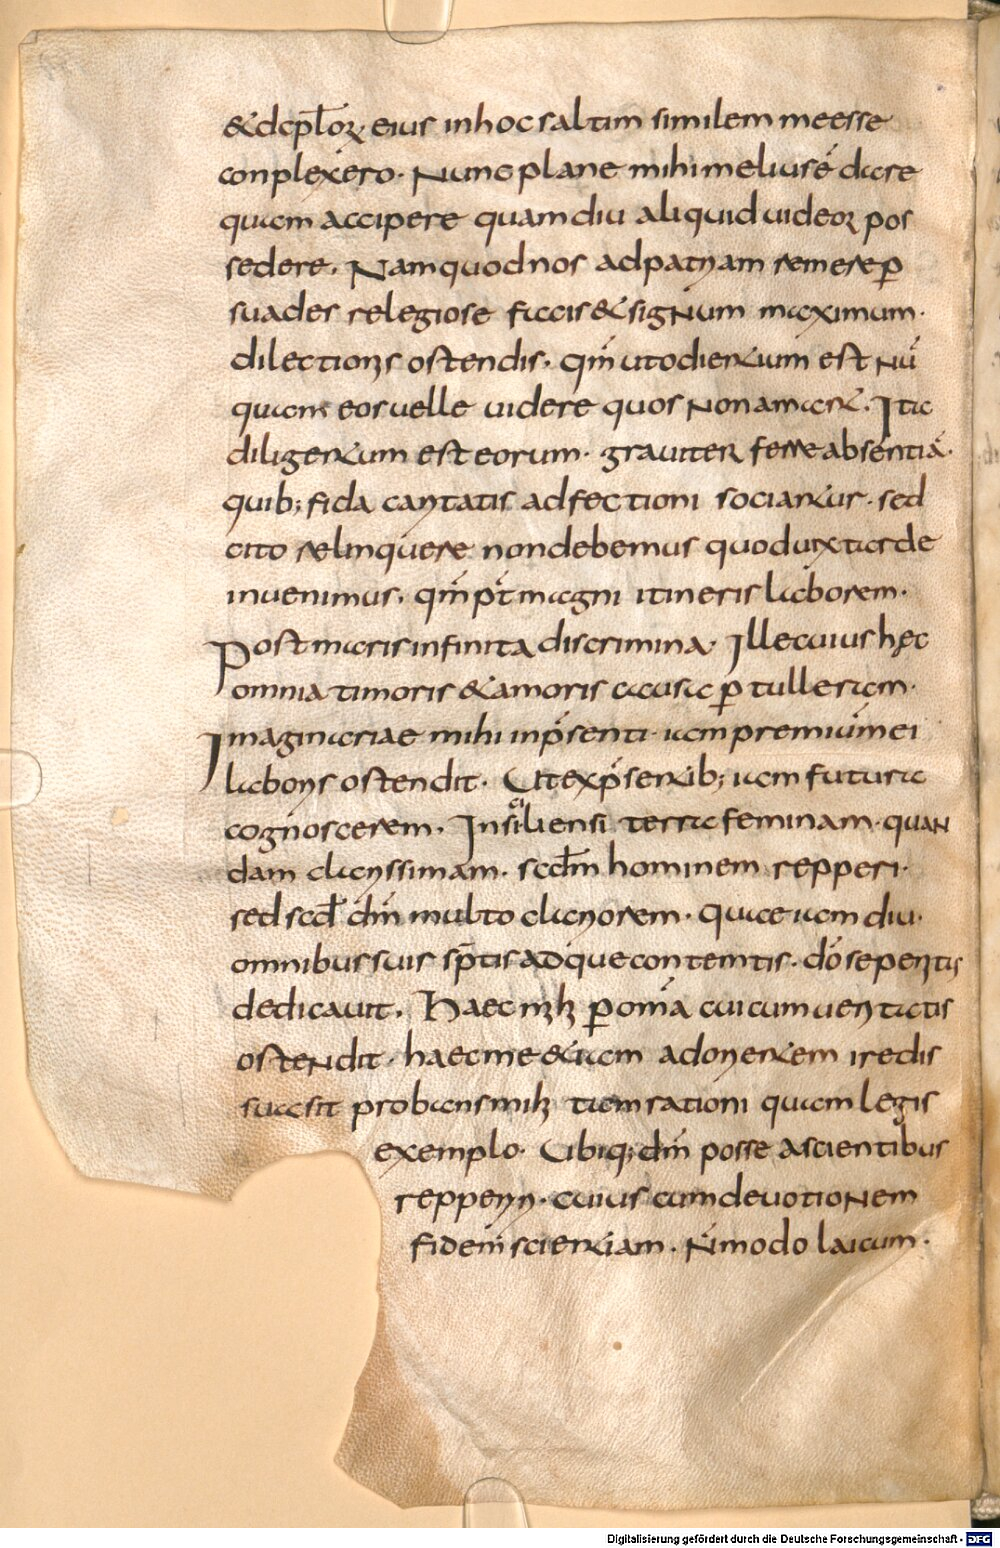 & dcplor eius in hoc saltim similem me esse
conplexero. Nunc plane mihi melius ē dare
quam accipere quam diu aliquid uideor pos
sedere. Nam quod nos ad patriam remere ꝑ
suades relegiose facis & signum maximum.
dilectionis ostendis. qm̄ ut odientium est nū
quam eos uelle uidere quos non amant. Ita
diligentium est eorum. grauiter ferre absentiā.
quib; fida caritatis adfectioni sociantur. sed
cito relinquere non debemus quod uix tarde
inuenimus. qm̄ p̄t magni itineris laborem.
Post maris infinita discrimina. Ille cuius hęc
omnia timoris & amoris causa ꝑtulleram.
Imaginariae mihi inp̄senti iam premiū mei
laboris ostendit. Ut exp̄sentib; iam futura
cognoscerem. In siciliensi terra feminam quan
dam clarissimam. scd̄m hominem repperi.
sed scd̄ dm̄ multo clariorem. quae iam diu.
omnibus suis sp̄tis adque contemtis. dō se pertis
dedicauit. Haec mih ꝑ omīa cui cum ueritatis
ostendit. haec me etiam ad orientem iredis
suasit probans mih tam rationi quam legis
exemplo. Ubiq; dm̄ posse a scientibus
repperiri. cuius cum deuotionem
fidem scientiam. Nimodo laicum.
Digitalisierung gefördert durch die Deutsche Forschungsgemeinschaft - DFG